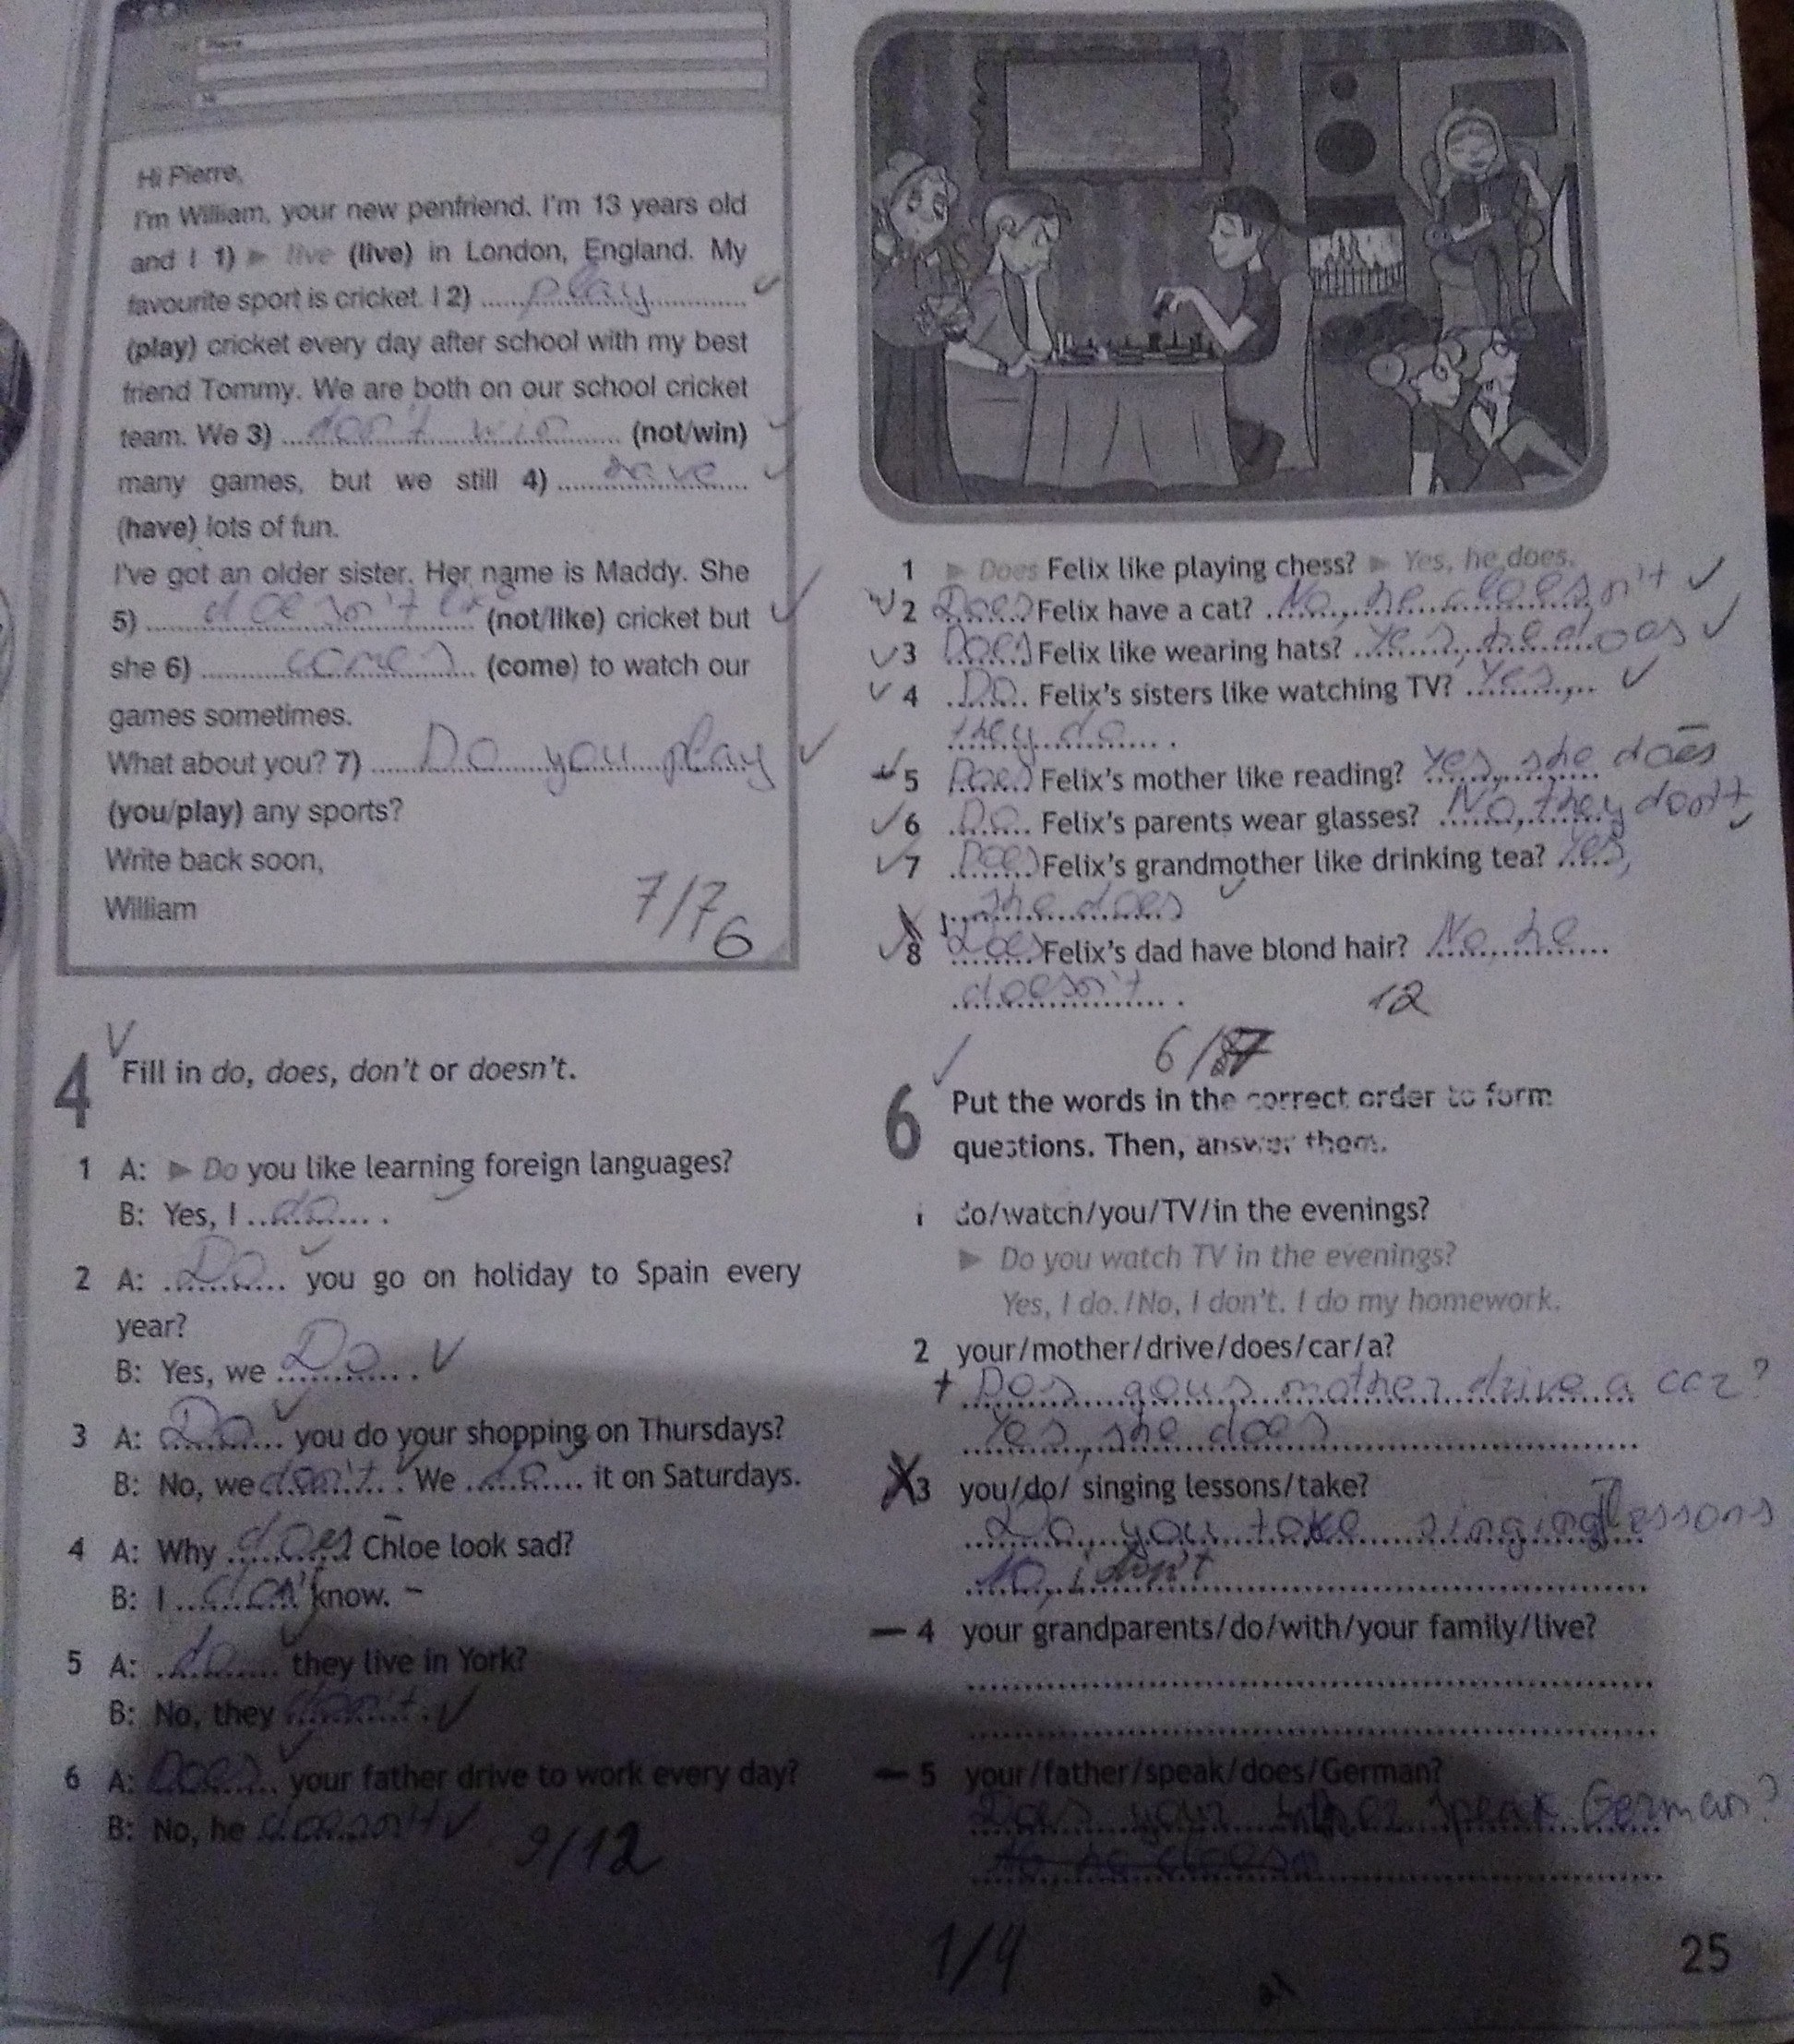 Hi Pierre,
I'm William, your new penfriend. I'm 13 years old
and I 1) ► live (live) in London, England. My
favourite sport is cricket. I 2) play ✓
(play) cricket every day after school with my best
friend Tommy. We are both on our school cricket
team. We 3) don't win (not/win) ✓
many games, but we still 4) have ✓
(have) lots of fun.
I've got an older sister. Her name is Maddy. She
5) doesn't like (not/like) cricket but ✓
she 6) comes (come) to watch our
games sometimes.
What about you? 7) Do you play ✓
(you/play) any sports?
Write back soon,
William
7/7
6
4 Fill in do, does, don't or doesn't.
1 A: ► Do you like learning foreign languages?
B: Yes, I do.
2 A: Do you go on holiday to Spain every
year?
B: Yes, we Do. ✓
3 A: Do you do your shopping on Thursdays?
B: No, we don't. We do it on Saturdays.
4 A: Why does Chloe look sad?
B: I don't know. –
5 A: do they live in York?
B: No, they don't. ✓
6 A: Does your father drive to work every day?
B: No, he doesn't ✓
9/12
1 ► Does Felix like playing chess? ► Yes, he does.
✓ 2 Does Felix have a cat? No, he doesn't ✓
✓ 3 Does Felix like wearing hats? Yes, he does ✓
✓ 4 Do Felix's sisters like watching TV? Yes, ✓
they do.
5 Does Felix's mother like reading? Yes, she does
✓ 6 Do Felix's parents wear glasses? No, they don't ✓
✓ 7 Does Felix's grandmother like drinking tea? Yes,
she does
✓ 8 Does Felix's dad have blond hair? No he
doesn't.
12
6/7
6 Put the words in the correct order to form
questions. Then, answer them.
1 do/watch/you/TV/in the evenings?
► Do you watch TV in the evenings?
Yes, I do./No, I don't. I do my homework.
2 your/mother/drive/does/car/a?
+ Does your mother drive a car?
Yes, she does
3 you/do/ singing lessons/take?
Do you take singing lessons
No, i don't
— 4 your grandparents/do/with/your family/live?
— 5 your/father/speak/does/German?
Does your speak German?
1/4
25